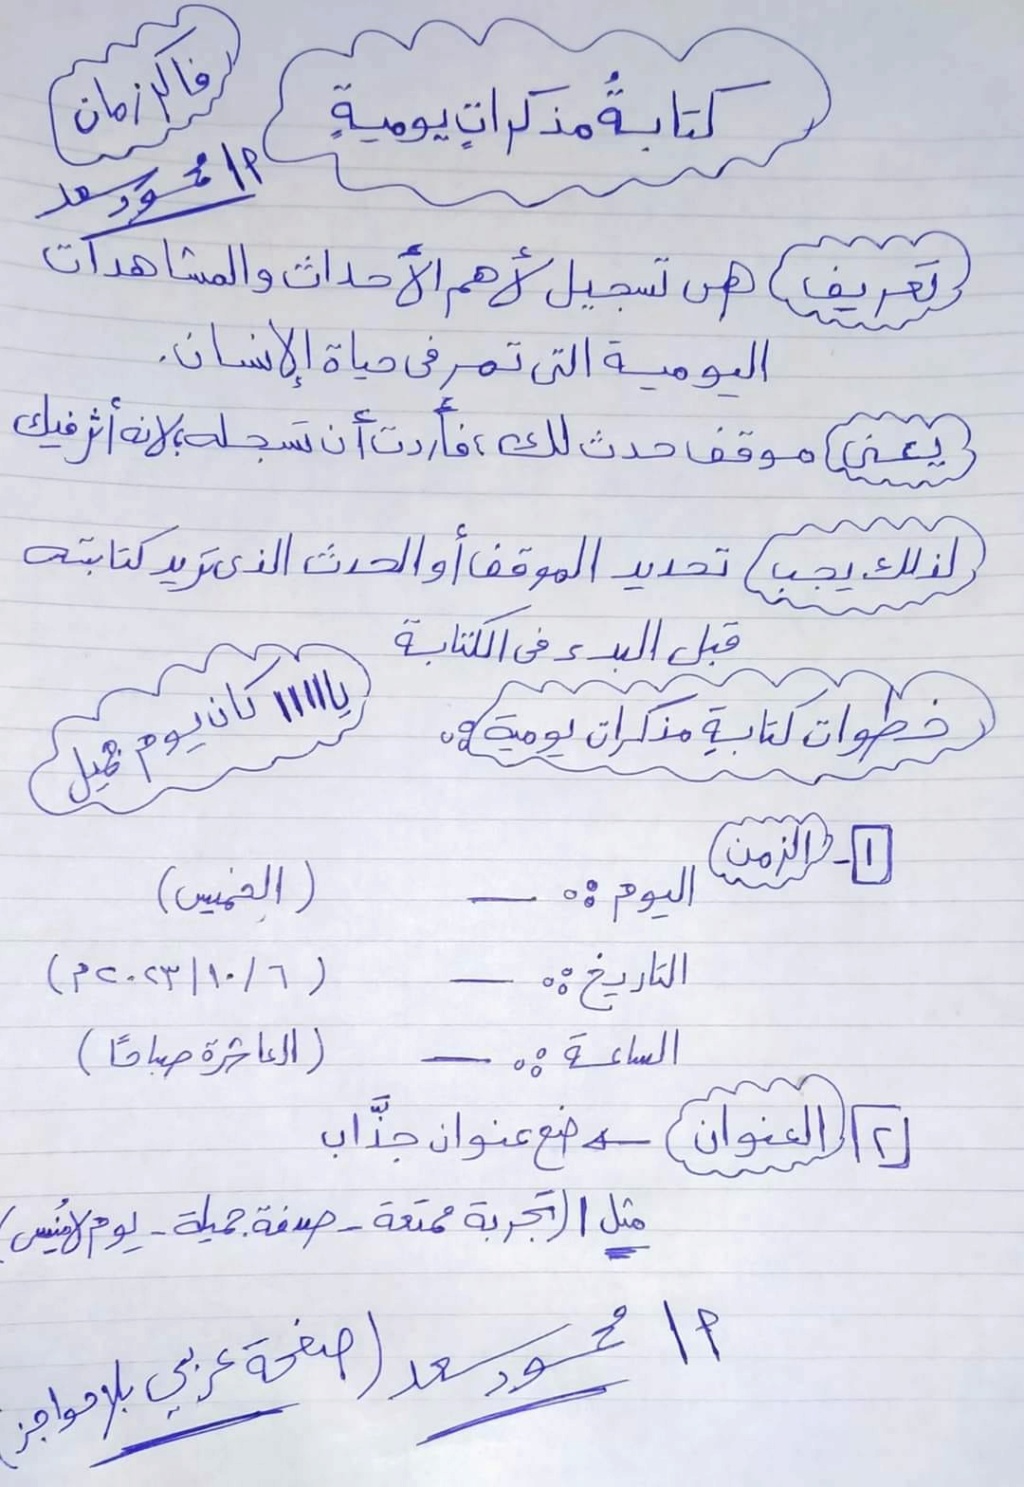 كتابةُ مذكراتٍ يوميةٍ
فاكر زمان
م/ا محمود سعد
تعريف هى تسجيل لأهم الأحداث والمشاهدات
اليومية التى تمر فى حياة الإنسان.
يعنى موقف حدث لك، فأردت أن تسجله؛ لانه أثر فيك
لذلك يجب تحديد الموقف أو الحدث الذى تريد كتابته
قبل البدء فى الكتابة
ياااااا كان يوم جميل
خطوات كتابةِ مذكرات يومية :
١- الزمن
اليوم : — (الخميس)
التاريخ : — (٦/١٠/٢٠٢٣م)
الساعة : — (العاشرة صباحًا)
٢ العنوان ← ضع عنوان جذَّاب
مثل / (تجربة ممتعة - صدفة جميلة - يوم لا يُنسى)
م/ا محمود سعد (صفحة عربي بلا حواجز)